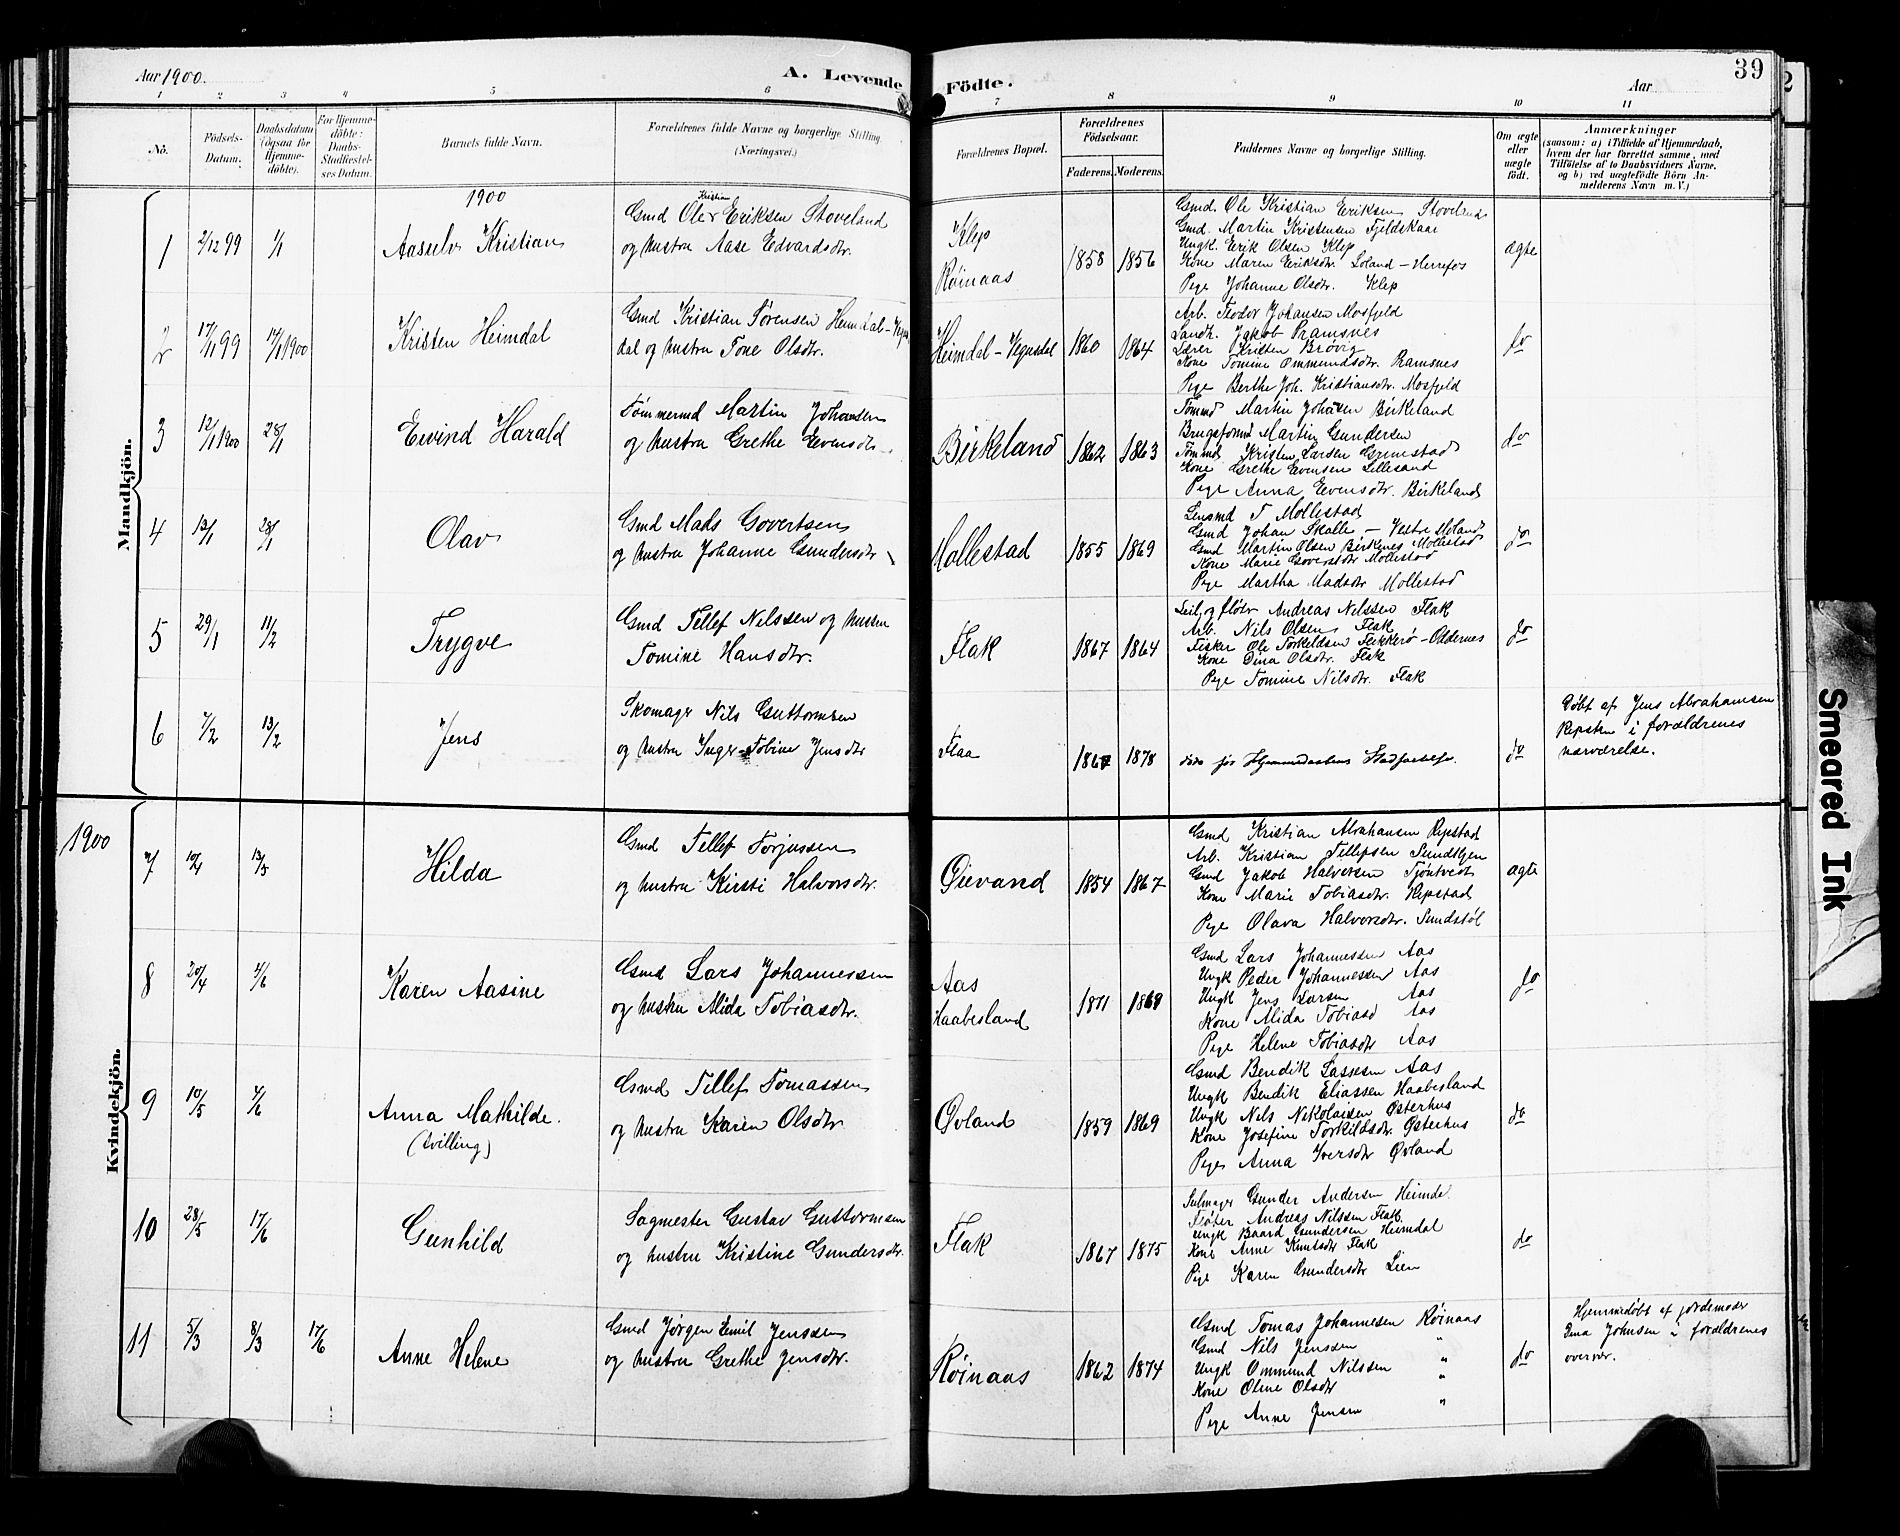 Aar 1900.
A. Levende
Födte.
Aar
39
1 2 3 4 5 6 7 8 9 10 11
No.
Födsels-
Datum.
Daabsdatum
(ogsaa for
Hjemme-
döbte).
For Hjemme-
döbte:
Daabs-
Stadfæstel-
ses Datum.
Barnets fulde Navn.
Forældrenes fulde Navne og borgerlige Stilling
(Næringsvei.)
Forældrenes Bopæl.
Forældrenes
Födselsaar.
Faderens. Moderens.
Faddernes Navne og borgerlige Stilling.
Om ægte
eller
uægte
födt.
Anmærkninger
(saasom: a) i Tilfælde af Hjemmedaab,
hvem der har forrettet samme, med
Tilföielse af to Daabsvidners Navne,
og b) ved uægtefödte Börn An-
melderens Navn m. V.)
Mandkjön.
1900
1
2/12 99
1/1
Aasselv Kristian
Kristian
Gmd Ole Eriksen Stoveland
og hustru Aase Edvardsdtr.
Klep
Røinaas
1858 1856
Gmd. Ole Kristian Eriksen Stoveland
Gmd. Martin Kristensen Fjeldskaar
Ungk. Erik Olsen Klep
Kone Maren Eriksdtr. Loland - Herrefos
Pige Johanne Olsdtr. Klep
ægte
2
17/11 99
14/1 1900
Kristen Heimdal
Gmd Kristian Sørensen Heimdal - Vegus
dal og hustru Tone Olsdtr.
Heimdal - Vegusdal
1860 1864
Arb. Teodor Johansen Mosfjeld
Landh. Jakob Ramsnes
Lærer Kristen Brøvig
Kone Tomine Ommundsdtr. Ramsnes
Pige Berthe Joh. Kristiansdtr. Mosfjeld
do
3
12/1 1900
28/1
Eivind Harald
Tømmermd Martin Johansen
og hustru Grethe Evensdtr.
Birkeland
1862 1863
Tømmd Martin Johasen Birkeland
Brugsformd Martin Gundersen
Tømmd Kristen Larsen Grimstad
Kone Grethe Evensen Lillesand
Pige Anna Evensdtr. Birkeland
do
4
13/1
28/1
Olav
Gmd Mads Govertsen
og hustru Johanne Gundersdtr
Mollestad
1855 1869
Lensmd T Mollestad
Gmd Johan Skalle - Vestre Moland
Gmd Martin Olsen Birkenes Mollestad
Kone Marie Govertsdtr Mollestad
Pige Martha Madsdtr Mollestad
do
5
29/1
11/2
Trygve
Gmd Tellef Nilssen og hustru
Tomine Hansdtr.
Flak
1867 1864
Leil. og fløter Andreas Nilssen Flak
Arb. Nils Olsen Flak
Fisker Ole Torkeldsen Flekkerø - Oddernes
Kone Dina Olsdtr. Flak
Pige Tomine Nilsdtr. Flak
do
6
7/2
13/2
Jens
Skomager Nils Guttormsen
og hustru Inger Tobine Jensdtr
Flaa
1867 1878
døde før Hjemmedaabens Stadfæstelse.
do
Døbt af Jens Abrahamsen
i forældrenes
nærværelse.
Kvindekjön.
1900
7
10/4
13/5
Hilda
Gmd Tellef Torjussen
og hustru Kirsti Halvorsdtr.
Øievand
1854 1867
Gmd Kristian Abrahamsen Repstad
Arb. Kristian Tellefsen
Gmd Jakob Halvorsen Tjøntvedt
Kone Marie Tobiasdtr. Repstad
Pige Olava Halvorsdtr. Sundstøl
ægte
8
20/4
4/6
Karen Aasine
Gmd Lars Johannessen
og hustru Alida Tobiasdtr.
Aas
Haabesland
1871 1868
Gmd Lars Johannessen Aas
Ungk Peder Johannessen Aas
Ungk Jens Larsen Aas
Kone Alida Tobiasd Aas
Pige Helene Tobiasdtr Aas
do
9
10/5
4/6
Anna Mathilde.
(tvilling)
Gmd Tellef Tomassen
og hustru Karen Olsdtr.
Øvland
1859 1869
Gmd Bendik Lassesen Aas
Ungk Bendik Eliassen Haabesland
Ungk Nils Nikolaisen Østerhus
Kone Josefine Torkildsdtr. Østerhus
Pige Anna Iversdtr Øvland
do
10
28/5
17/6
Gunhild
Sagmester Gustav Guttormsen
og hustru Kristine Gundersdtr.
Flak
1867 1875
Selmager Gunder Andersen Heimdal
Fløter Andreas Nilssen Flak
Ungk Baard Gundersen Heimdal
Kone Anne Knutsdtr Flak
Pige Karen Gundersdtr Lien
do
11
5/3
8/3
17/6
Anne Helene
Gmd Jørgen Emil Jenssen
og hustru Grethe Jensdtr.
Røinaas
1862 1874
Gmd Tomas Johannesen Røinaas
Gmd Nils Jenssen "
Ungk Ommund Nilssen "
Kone Oline Olsdtr "
Pige Anne Jensen "
do
Hjemmedøbt af jordemoder
Johnsen i forældrenes
overvær.
Smeared Ink